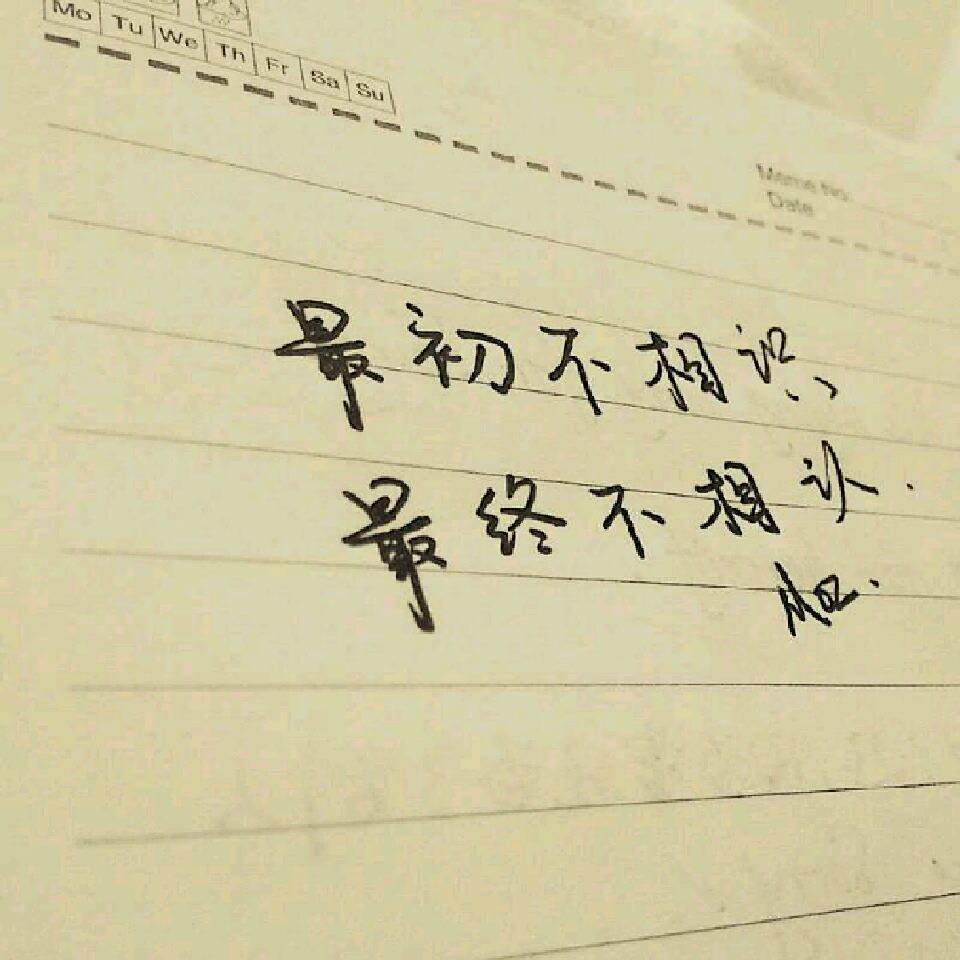 Mo Tu We Th Fr Sa Su
Memo No.
Date
最初不相识
最终不相认.